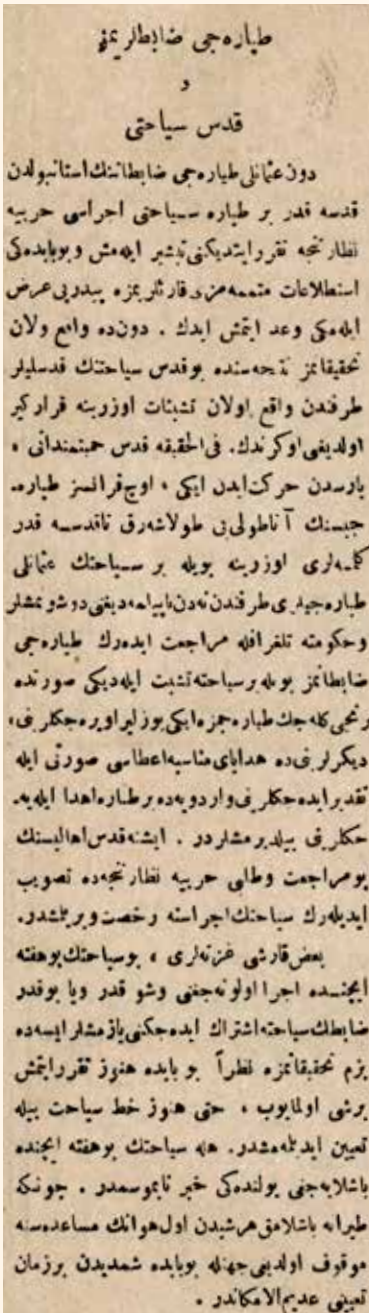 طیاره‌جی ضابطلریمز
و
قدس سیاحتی
دون عثمانلی طیاره‌جی ضابطاننك استانبولدن
قدسه قدر بر طیاره سیاحتی اجراسی حربیه
نظارتنجه تقرر ایتدیكنی تبشیر ایله‌مش و بوبابده‌كی
استطلاعات متممه‌مزی قارئلریمزه پیدرپی عرض
ایله‌مكی وعد ایتمش ایدك . دون‌ده واقع ولان
تحقیقاتمز نتیجه‌سنده بوقدس سیاحتنك قدسلیلر
طرفندن واقع اولان تشبثات اوزرینه قرارگیر
اولدیغی اوكرندك. فی‌الحقیقه قدس حمیتمندانی ،
پارسدن حركت ایدن ایكی ، اوچ فرانسز طیاره‌ـ
جیسنك آناطولی‌یی طولاشه‌رق تاقدسه قدر
كلمه‌لری اوزرینه بویله بر سیاحتك عثمانلی
طیاره‌جیلری طرفندن نه‌دن یاپیله‌مه‌دیغنی دوشونمشلر
و حكومته تلغرافله مراجعت ایده‌رك طیاره‌جی
ضابطانمز بویله برسیاحته تشبث ایله‌دیكی صورتده
برنجی كله‌جك طیاره‌جمزه ایكی یوز لیرا ویره‌جكلرینی،
دیگرلرینی‌ده هدایای مناسبه اعطاسی صورتی ایله
تقدیر ایده‌جكلرینی و اردویه‌ده برطیاره اهدا ایله‌یه‌ـ
جكلرینی بیلدیرمشلردر . ایشته قدس اهالیسنك
بومراجعت وطلبی حربیه نظارتنجه‌ده تصویب
ایدیله‌رك سیاحتك اجراسنه رخصت ویریلمشدر.
بعض قارشی غزته‌لری ، بوسیاحتك بوهفته
ایچنده اجرا اولونه‌جغنی وشو قدر ویا بوقدر
ضابطك سیاحته اشتراك ایده‌جكنی یازمشلر ایسه‌ده
بزم تحقیقاتمزه نظراً بو بابده هنوز تقرر ایتمش
برشی اولمایوب ، حتی هنوز خط سیاحت بیله
تعیین ایدیلمه‌مشدر. هله سیاحتك بوهفته ایچنده
باشلایه‌جغی یولنده‌كی خبر تابموسمدر . چونكه
طیرانه باشلامق هرشیدن اول هوانك مساعده‌سنه
موقوف اولدیغی جهتله بوبابده شمدیدن برزمان
تعیینی عدیم‌الامكاندر .